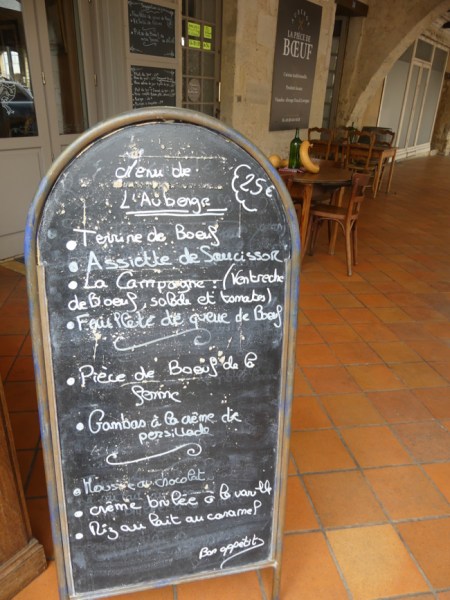 LA PIÈCE DE
BŒUF
Menu de
L'Auberge
25€
• Terrine de Boeuf
• Assiette de Saucisson
• La Campagne : (Ventreche
de Boeuf, salade et tomates)
• Feuilleté de queue de Boeuf
• Pièce de Boeuf de la
ferme
• Gambas à la crème de
persillade
• Mousse au chocolat
• crème brûlée à la vanille
• Riz au lait au caramel
Bon appétit